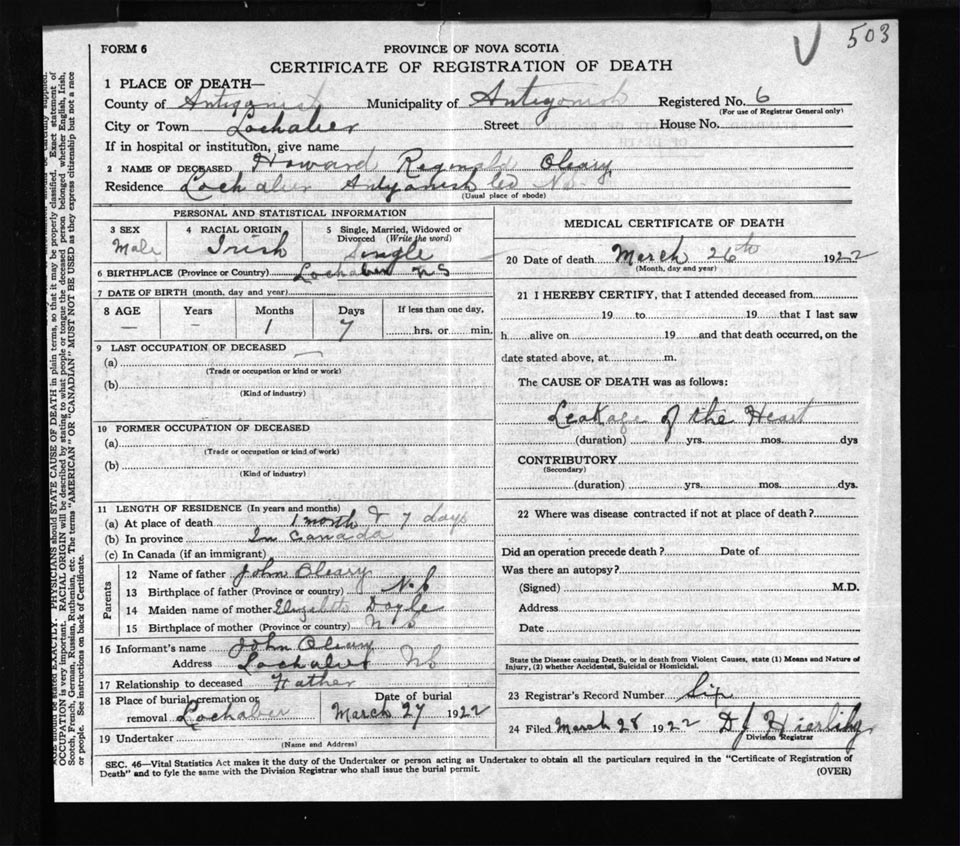 503
FORM 6
PROVINCE OF NOVA SCOTIA
CERTIFICATE OF REGISTRATION OF DEATH
1 PLACE OF DEATH—
County of Antigonish Municipality of Antigonish Registered No. 6
(For use of Registrar General only)
City or Town Lochaber Street House No.
If in hospital or institution, give name
2 NAME OF DECEASED Howard Reginald Oleary
Residence Lochaber Antigonish Co NS
(Usual place of abode)
PERSONAL AND STATISTICAL INFORMATION
3 SEX 4 RACIAL ORIGIN 5 Single, Married, Widowed or
Divorced (Write the word)
Male Irish Single
6 BIRTHPLACE (Province or Country) Lochaber NS
7 DATE OF BIRTH (month, day and year)
8 AGE Years Months Days If less than one day,
— — 1 7 hrs. or min.
9 LAST OCCUPATION OF DECEASED —
(a)
(Trade or occupation or kind or work)
(b)
(Kind of industry)
10 FORMER OCCUPATION OF DECEASED
(a)
(Trade or occupation or kind of work)
(b)
(Kind of industry)
11 LENGTH OF RESIDENCE (In years and months)
(a) At place of death 1 month & 7 days
(b) In province In Canada
(c) In Canada (if an immigrant)
Parents
12 Name of father John Oleary
13 Birthplace of father (Province or country) N.S
14 Maiden name of mother Elizabeth Doyle
15 Birthplace of mother (Province or country) NS
16 Informant's name John Oleary
Address Lochaber NS
17 Relationship to deceased Father
18 Place of burial, cremation or Date of burial
removal Lochaber March 27 1922
19 Undertaker
(Name and Address)
MEDICAL CERTIFICATE OF DEATH
20 Date of death March 26th 1922
(Month, day and year)
21 I HEREBY CERTIFY, that I attended deceased from
19 to 19 that I last saw
h alive on 19 and that death occurred, on the
date stated above, at m.
The CAUSE OF DEATH was as follows:
Leakage of the Heart
(duration) yrs. mos. dys
CONTRIBUTORY
(Secondary)
(duration) yrs. mos. dys.
22 Where was disease contracted if not at place of death?
Did an operation precede death? Date of
Was there an autopsy?
(Signed) M.D.
Address
Date
State the Disease causing Death, or in death from Violent Causes, state (1) Means and Nature of
Injury, (2) whether Accidental, Suicidal or Homicidal.
23 Registrar's Record Number Six
24 Filed March 28 1922 D J Hierlihy
Division Registrar
SEC. 46—Vital Statistics Act makes it the duty of the Undertaker or person acting as Undertaker to obtain all the particulars required in the "Certificate of Registration of
Death" and to fyle the same with the Division Registrar who shall issue the burial permit.
(OVER)
should be stated EXACTLY. PHYSICIANS should STATE CAUSE OF DEATH in plain terms, so that it may be properly classified. Exact statement of
OCCUPATION is very important. RACIAL ORIGIN will be described by stating to what people or tongue the deceased person belonged whether English, Irish,
Scotch, French, German, Russian, Ruthenian, etc. The terms "AMERICAN" OR "CANADIAN" MUST NOT BE USED as they express citizenship but not a race
or people. See instructions on back of Certificate.